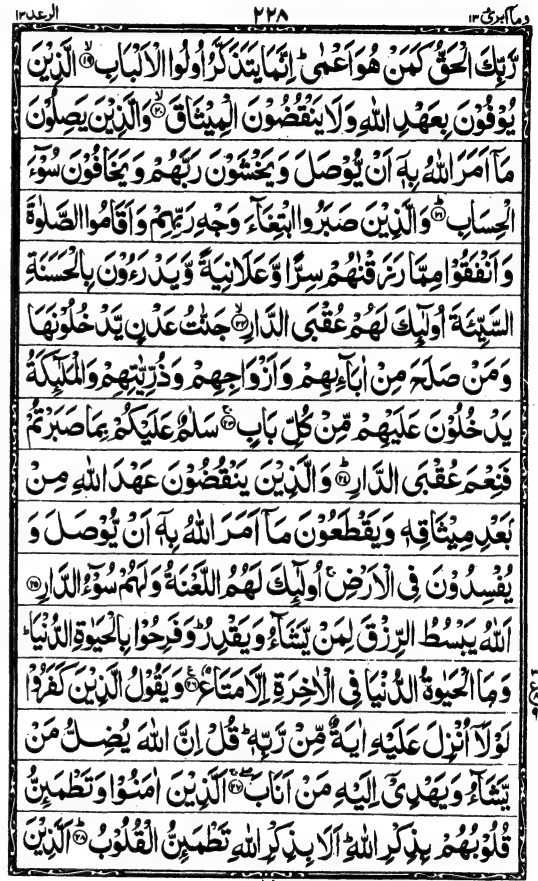 وما ابرئ ١٣ ٢٢٨ الرعد ١٣
رَّبِّكَ الْحَقُّ كَمَنْ هُوَ اَعْمٰىؕ اِنَّمَا يَتَذَكَّرُ اُولُوا الْاَلْبَابِۙ‏﴿۱۹﴾ الَّذِيْنَ
يُوْفُوْنَ بِعَهْدِ اللّٰهِ وَلَا يَنْقُضُوْنَ الْمِيْثَاقَۙ‏﴿۲۰﴾ وَالَّذِيْنَ يَصِلُوْنَ
مَاۤ اَمَرَ اللّٰهُ بِهٖۤ اَنْ يُّوْصَلَ وَيَخْشَوْنَ رَبَّهُمْ وَيَخَافُوْنَ سُوْٓءَ
الْحِسَابِؕ‏﴿۲۱﴾ وَالَّذِيْنَ صَبَرُوا ابْتِغَآءَ وَجْهِ رَبِّهِمْ وَاَقَامُوا الصَّلٰوةَ
وَاَنْفَقُوْا مِمَّا رَزَقْنٰهُمْ سِرًّا وَّعَلَانِيَةً وَّيَدْرَءُوْنَ بِالْحَسَنَةِ
السَّيِّئَةَ اُولٰٓئِكَ لَهُمْ عُقْبَى الدَّارِۙ‏﴿۲۲﴾ جَنّٰتُ عَدْنٍ يَّدْخُلُوْنَهَا
وَمَنْ صَلَحَ مِنْ اٰبَآئِهِمْ وَاَزْوَاجِهِمْ وَذُرِّيّٰتِهِمْ وَالْمَلٰٓئِكَةُ
يَدْخُلُوْنَ عَلَيْهِمْ مِّنْ كُلِّ بَابٍۚ‏﴿۲۳﴾ سَلٰمٌ عَلَيْكُمْ بِمَا صَبَرْتُمْ
فَنِعْمَ عُقْبَى الدَّارِؕ‏﴿۲۴﴾ وَالَّذِيْنَ يَنْقُضُوْنَ عَهْدَ اللّٰهِ مِنْۢ
بَعْدِ مِيْثَاقِهٖ وَيَقْطَعُوْنَ مَاۤ اَمَرَ اللّٰهُ بِهٖۤ اَنْ يُّوْصَلَ وَ
يُفْسِدُوْنَ فِى الْاَرْضِۙ اُولٰٓئِكَ لَهُمُ اللَّعْنَةُ وَلَهُمْ سُوْٓءُ الدَّارِ‏﴿۲۵﴾
اَللّٰهُ يَبْسُطُ الرِّزْقَ لِمَنْ يَّشَآءُ وَيَقْدِرُؕ وَفَرِحُوْا بِالْحَيٰوةِ الدُّنْيَاؕ
وَمَا الْحَيٰوةُ الدُّنْيَا فِى الْاٰخِرَةِ اِلَّا مَتَاعٌ‏﴿۲۶﴾ وَيَقُوْلُ الَّذِيْنَ كَفَرُوْا
لَوْلَاۤ اُنْزِلَ عَلَيْهِ اٰيَةٌ مِّنْ رَّبِّهٖؕ قُلْ اِنَّ اللّٰهَ يُضِلُّ مَنْ
يَّشَآءُ وَيَهْدِىْۤ اِلَيْهِ مَنْ اَنَابَۖۚ‏﴿۲۷﴾ اَلَّذِيْنَ اٰمَنُوْا وَتَطْمَئِنُّ
قُلُوْبُهُمْ بِذِكْرِ اللّٰهِؕ اَلَا بِذِكْرِ اللّٰهِ تَطْمَئِنُّ الْقُلُوْبُؕ‏﴿۲۸﴾ اَلَّذِيْنَ